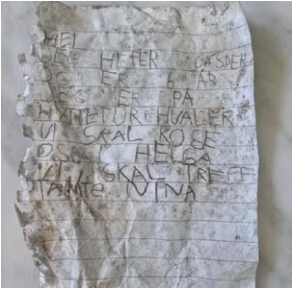 HEI
JEG HETER CASPER
JEG ER 6 ÅR
JEG ER PÅ
HYTTETUR HVALER
VI SKAL KOSE
OSS I HELGA
VI SKAL TREFFE
TANTE NINA